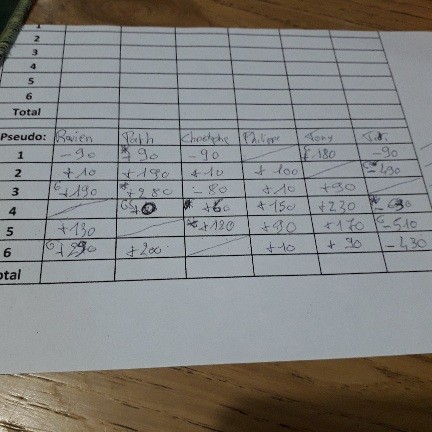 1
2
3
4
5
6
Total
Pseudo: Path Christophe Philippe Tony
1 -90 +90 -90 +180 -90
2 +10 +190 +10 +100 -490
3 +190 +280 -80 +10 +90
4 +60 +150 +230
5 +130 +120 +90 +170 -510
6 +290 +200 +10 +90 -430
otal